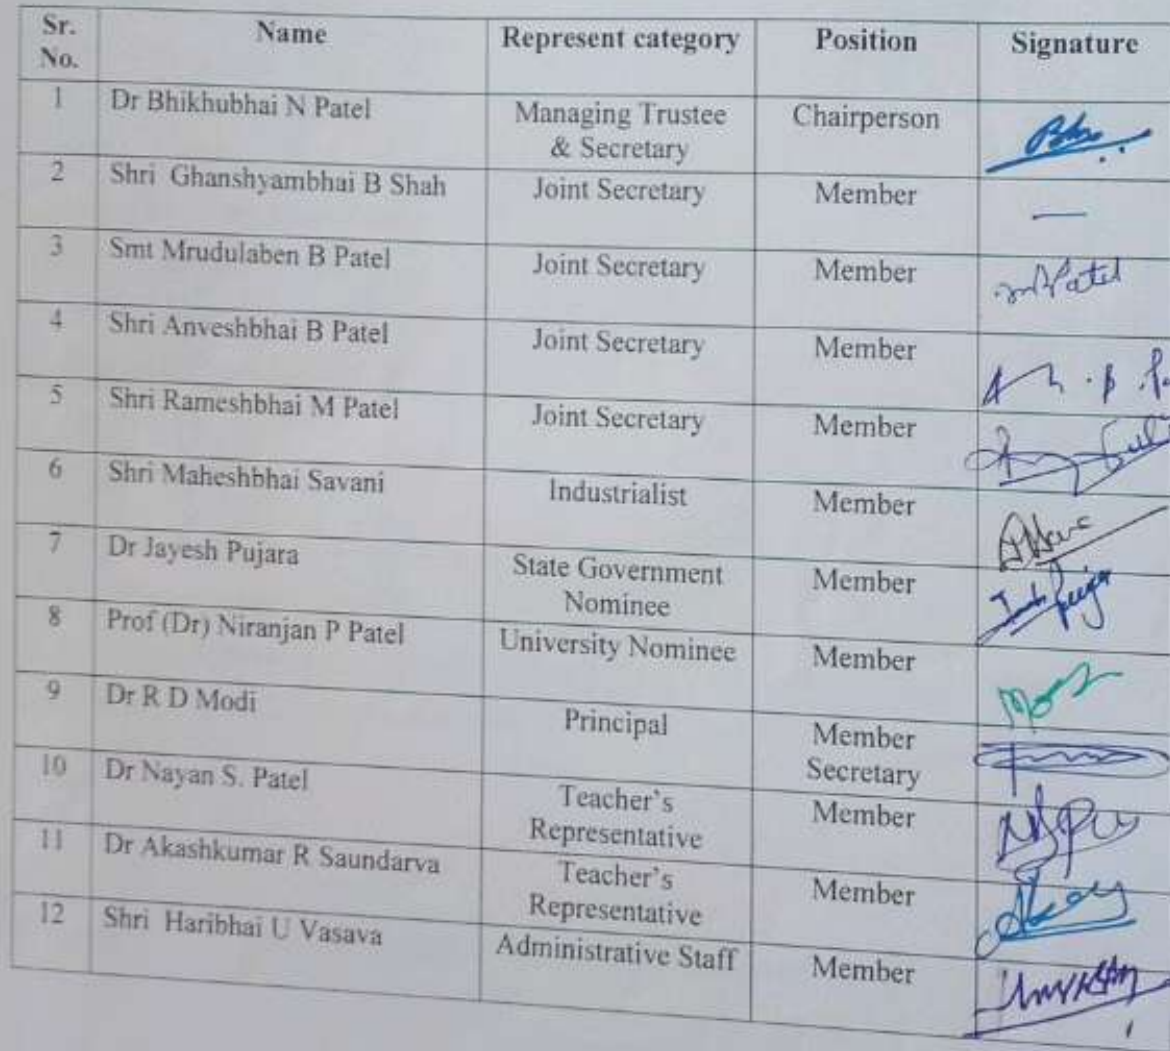 Sr. No. Name Represent category Position Signature
1 Dr Bhikhubhai N Patel Managing Trustee & Secretary Chairperson
2 Shri Ghanshyambhai B Shah Joint Secretary Member —
3 Smt Mrudulaben B Patel Joint Secretary Member Patel
4 Shri Anveshbhai B Patel Joint Secretary Member
5 Shri Rameshbhai M Patel Joint Secretary Member
6 Shri Maheshbhai Savani Industrialist Member
7 Dr Jayesh Pujara State Government Nominee Member
8 Prof (Dr) Niranjan P Patel University Nominee Member
9 Dr R D Modi Principal Member Secretary
10 Dr Nayan S. Patel Teacher's Representative Member
11 Dr Akashkumar R Saundarva Teacher's Representative Member
12 Shri Haribhai U Vasava Administrative Staff Member